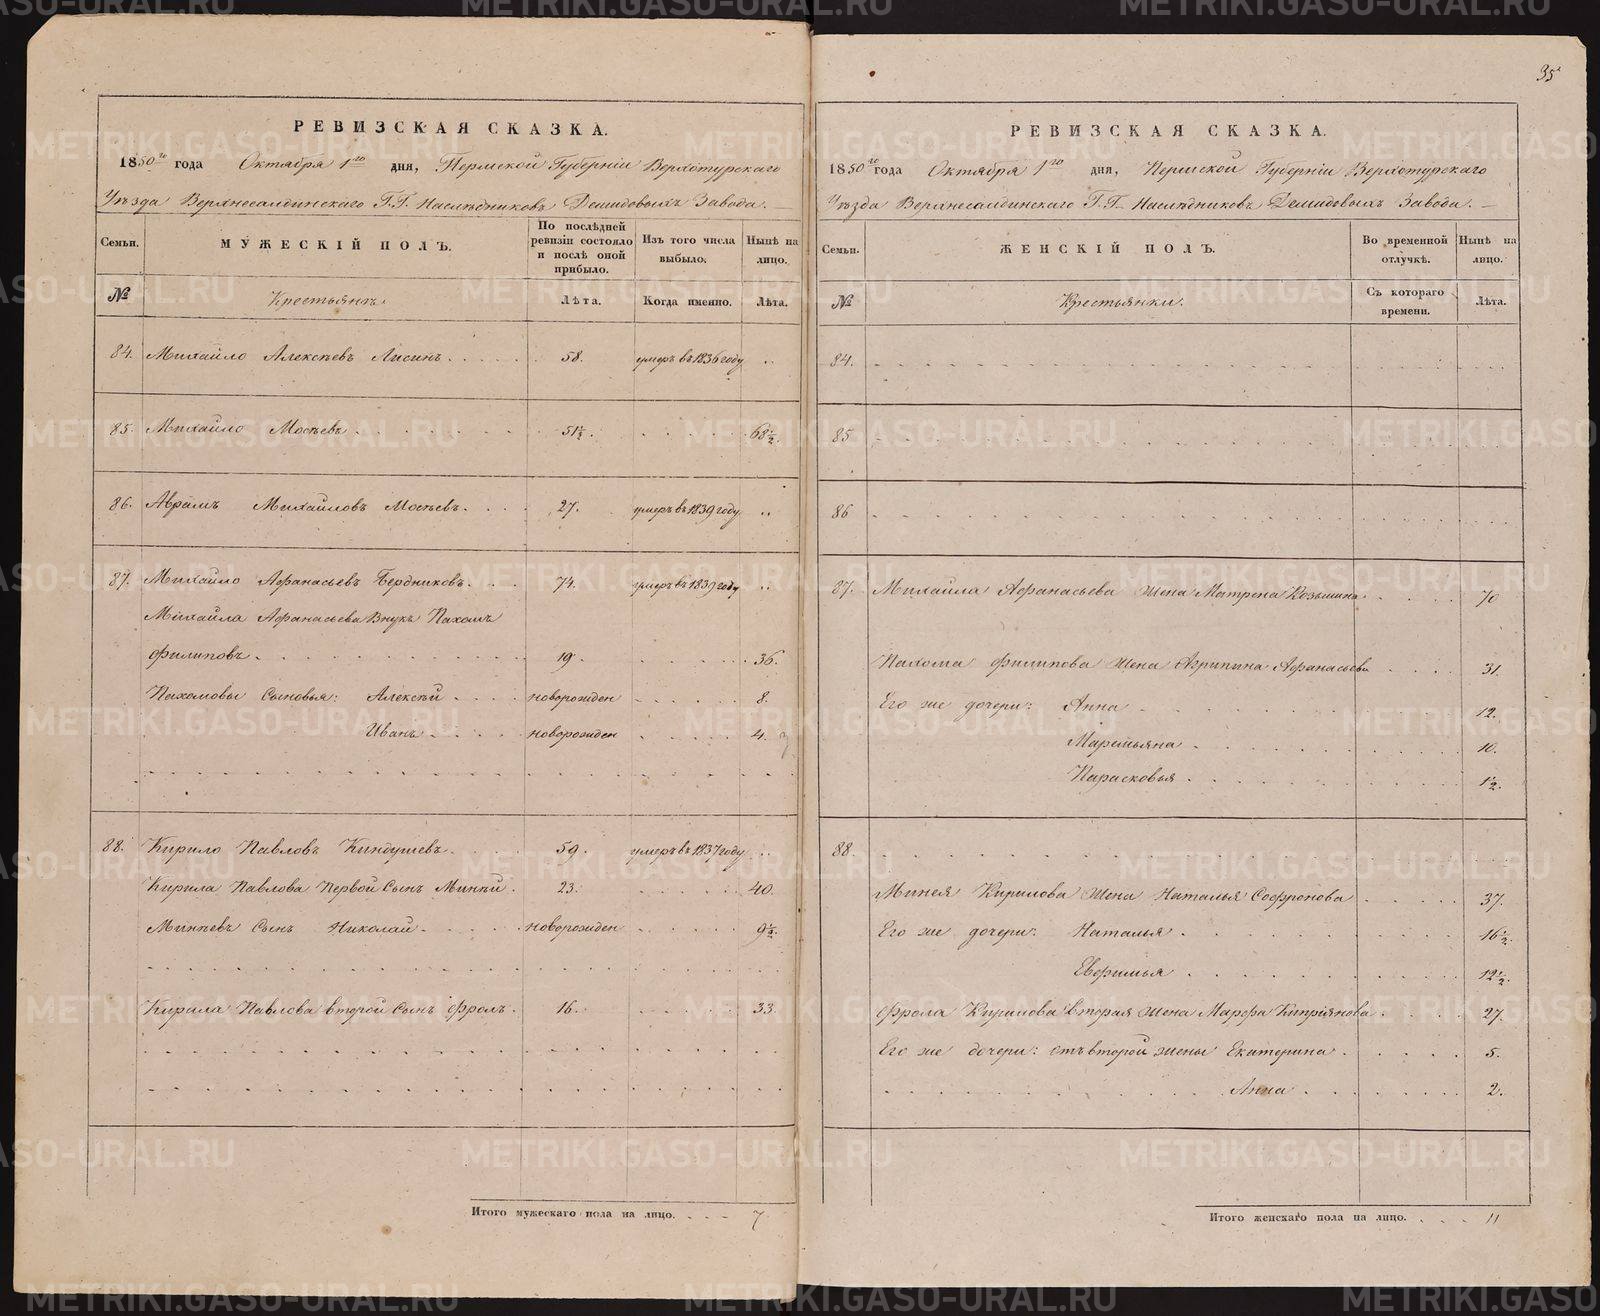 35
РЕВИЗСКАЯ СКАЗКА.
1850го года Октября 1го дня, Пермской Губерніи Верхотурскаго
Уѣзда Верхнесалдинскаго Г.Г. Наслѣдниковъ Демидовыхъ Завода.
Семьи. МУЖЕСКІЙ ПОЛЪ. По послѣдней ревизіи состояло и послѣ оной прибыло. Изъ того числа выбыло. Нынѣ на лицо.
№ Крестьянъ. Лѣта. Когда именно. Лѣта.
84. Михайло Алексѣевъ Лисинъ 58. умеръ въ 1836 году
85. Михайло Мосѣевъ 51½. 68½.
86. Аврамъ Михайловъ Мосѣевъ. 27. умеръ въ 1839 году
87. Михайло Афанасьевъ Бердниковъ. 74. умеръ въ 1839 году
Михайла Афанасьева Внукъ Пахомъ
Филиповъ. 19. 36.
Пахомовы Сыновья: Алексѣй новорожден 8.
Иванъ новорожден 4.
88. Кирило Павловъ Киндушевъ. 59. умеръ въ 1837 году
Кирила Павлова Первой Сынъ Минѣй. 23. 40.
Минѣевъ Сынъ Николай новорожден 9½.
Кирила Павлова второй Сынъ Фролъ. 16. 33.
Итого мужескаго пола на лицо. 7
РЕВИЗСКАЯ СКАЗКА.
1850го года Октября 1го дня, Пермской Губерніи Верхотурскаго
Уѣзда Верхнесалдинскаго Г.Г. Наслѣдниковъ Демидовыхъ Завода.
Семьи. ЖЕНСКІЙ ПОЛЪ. Во временной отлучкѣ. Нынѣ на лицо.
№ Крестьянки. Съ котораго времени. Лѣта.
84.
85
86
87. Михайла Афанасьева жена Матрена Козьмина 70
Пахома Филипова жена Агрипина Афанасьева 31.
Его же дочери: Анна 12.
Маремьяна 10.
Парасковья 1½.
88.
Минея Кирилова жена Наталья Софронова 37.
Его же дочери: Наталья 16½.
Евфимья 12½.
Фрола Кирилова вторая жена Марфа Кипріянова 27.
Его же дочери: отъ второй жены Екатерина 5.
Анна 2.
Итого женскаго пола на лицо. 11
METRIKI.GASO-URAL.RU